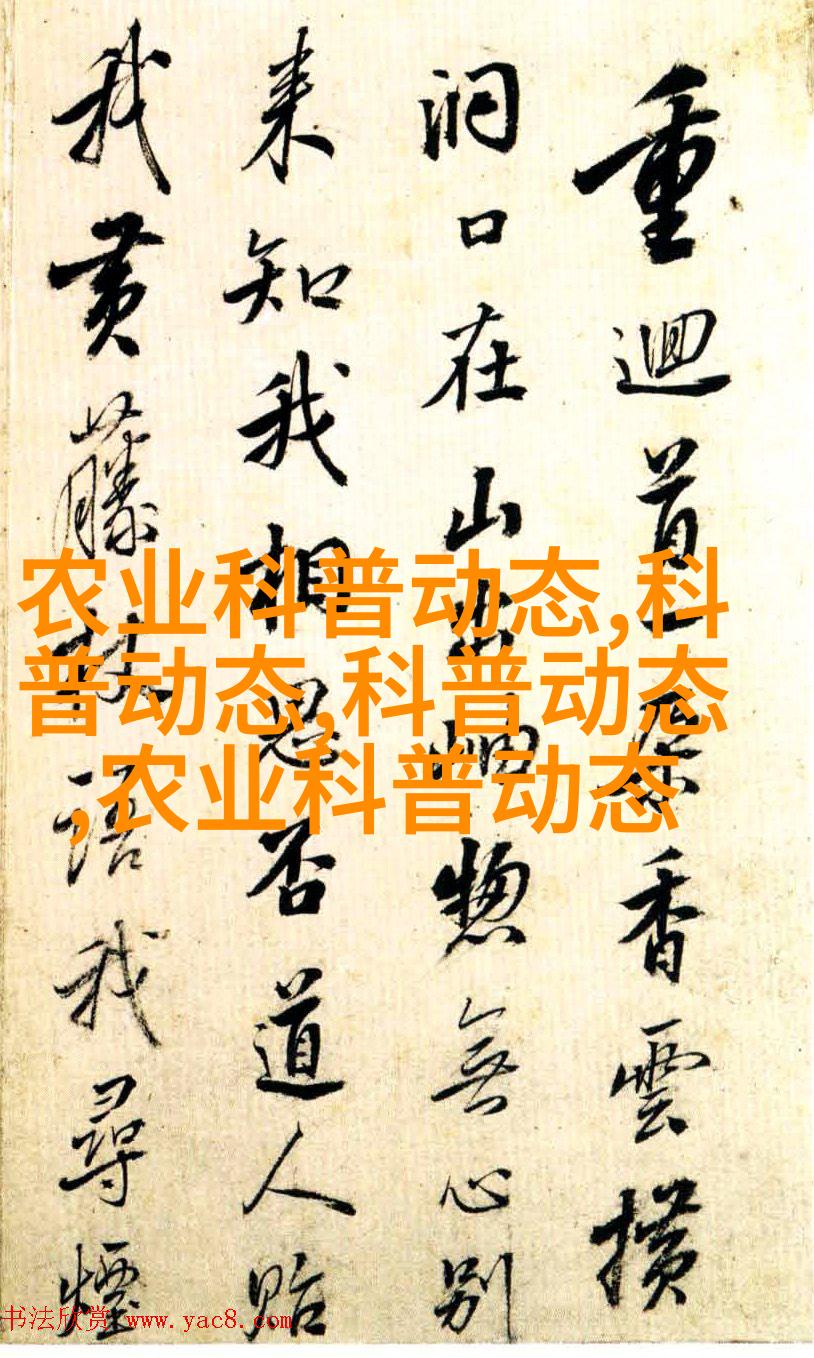 重迴首香雲擴
洞口在山出岫惣無心別
来知我相思否道人貽
我黄藤杖語我尋煙
农业科普动态,科
普动态,科普动态
,农业科普动态
书法欣赏 www.yac8.com